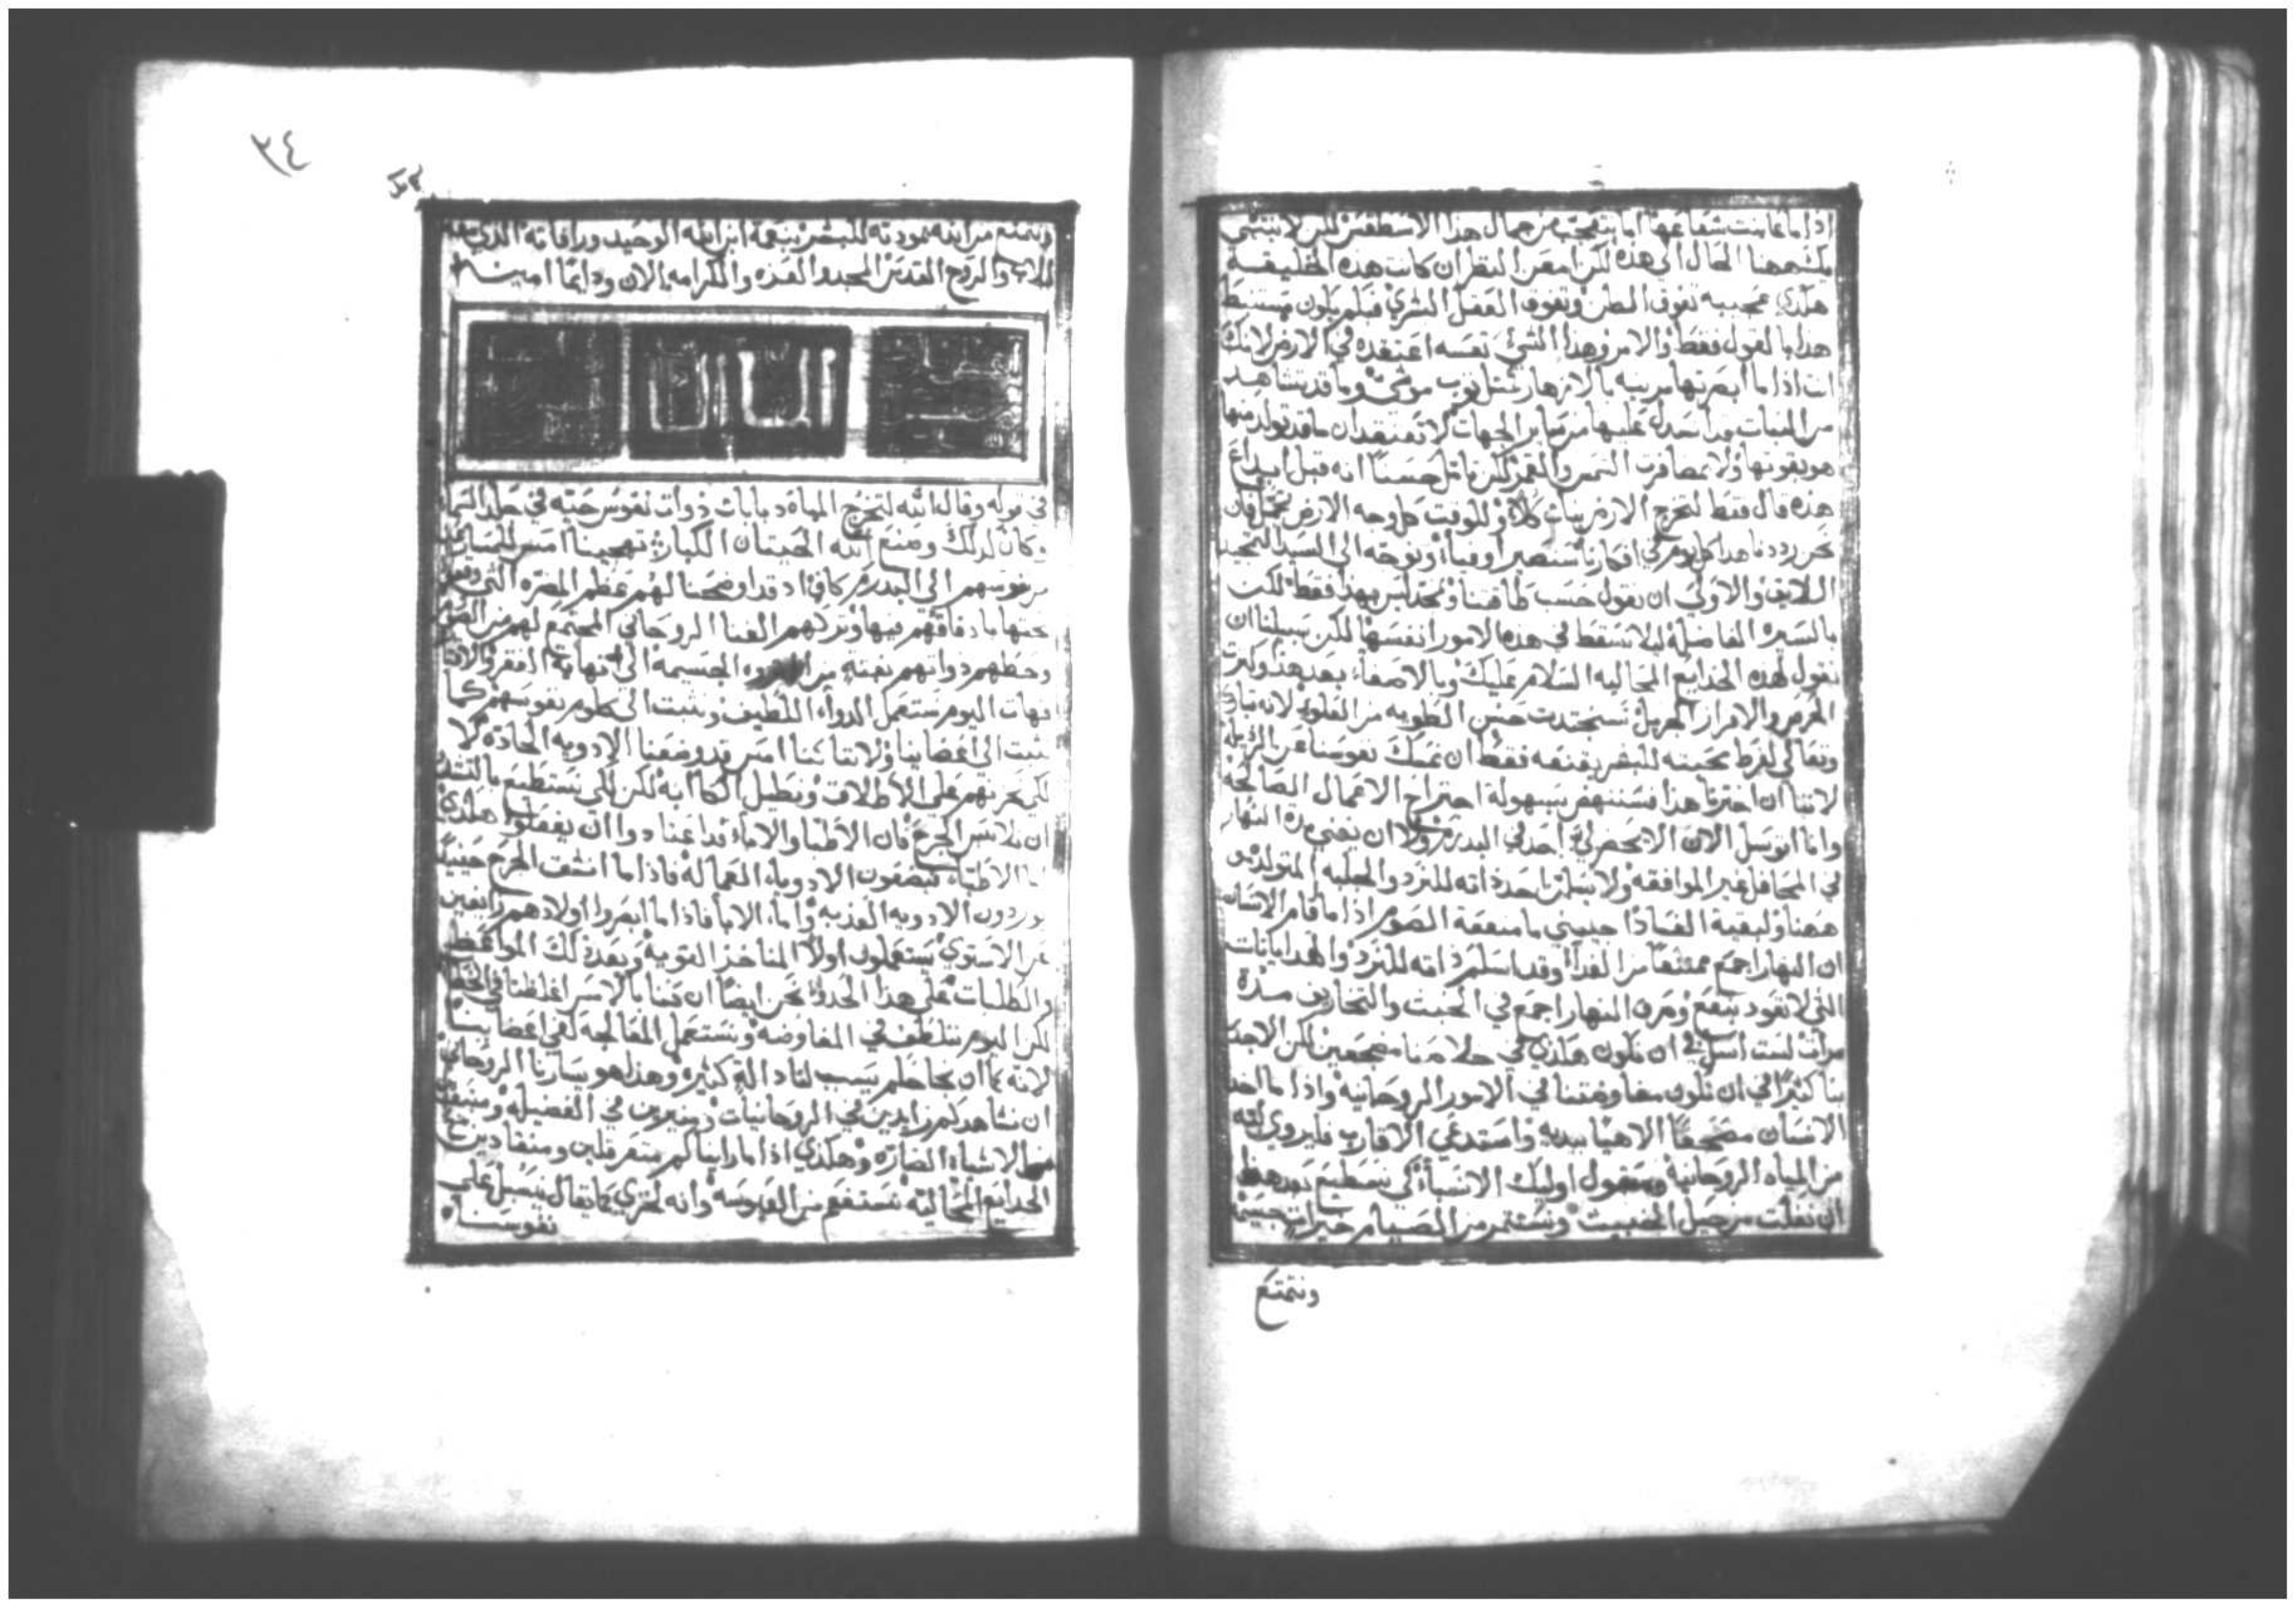 اذا ما عاينت شعاعها اما يتعجب من جمال هذا الاسطقس لكن لا ينتهي
هاهنا الحال الى هذه لكن امعن النظر ان كانت هذه الخليقه
هكذي عجيبه تفوق الظن وتفوق العقل البشري فبلم يكون مستنبط
هذا بالقول فقط والامر وهذا الشي نفسه اعتقده في الارض لانك
انت اذا ما ابصرتها مزينه بالازهار مثل ثوب موشى وما قد تشاهد
من النبات قد انسدل عليها من ساير الجهات لا تعتقد ان ما قد تولد منها
هو بقوتها ولا بمضافرت الشمس والقمر لكن تامل حسنا انه قبل ابداع
هذه قال فقط لتخرج الارض نبات كلاء وللوقت كل وجه الارض تجمل فان
نحن رددنا هذا كل يوم في افكارنا سنصير اوفياء ونوجه الى السيد التمجيد
اللايق والاولى ان نقول حسب طاقتنا ونمجد ليس بهذا فقط لكن
بالسيره الفاضله ليلا نسقط في هذه الامور انفسها لكن سبيلنا ان
نقول لهذه الخدايع المحاليه السلام عليك وبالاصغاء بعد هذا وكثرت
الحرص والاقرار الجزيل نستجتدت حسن الطويه من العلو لانه تبارك
وتعالى لفرط محبته للبشر يقنعه فقط ان نمسك نفوسنا عن الرذيله
لاننا ان اخترنا هذا فسننهض بسهولة اجتراح الاعمال الصالحة
وانا اتوسل الان الا يحضر لي احد في البدرمن ولا ان يفني مدة النهار
في المحافل غير الموافقه ولا يسلمن احد ذاته للنرد والجلبه المتولده
ههنا ولبقية الفساد اجبني ما منفعة الصوم اذا ما قام الانسان
ان النهار اجمع ممتنعا من الغذاء وقد اسلم ذاته للنرد والهذايانات
التي لا تعود بنفع ومره النهار اجمع في الحنث والتخاريف مدة
مرات لست اسل في ان نكون هكذي في خلاصنا مضجعين لكن الاجدر
بنا كثيرا في ان تكون مفاوضتنا في الامور الروحانيه واذا ما اخذ
الانسان مصحفا الاهيا بيديه واستدعى الاقارب فليروي ذاته
من المياه الروحانيه وعقول اوليك الانسباء كي نستطيع بعد هذا
ان نفلت من حيل الخبيث ونستثمر من الصيام خيرات جسيمه
ونتمتع
٣٤
ونتمتع من الله بمودته للبشر بنعمة ابن الله الوحيد ورافاته الذي
للاب والروح القدس المجد والعزه والكرامه الان ودايما امين
في قوله وقال الله لتخرج المياه دبابات ذوات نفوس حيه في جلد السما
وكان لذلك وصنع الله الحيتان الكبار تهجينا امس للمسارعين
من نفوسهم الي البدرمن كافيا اذ قد اوضحنا لهم عظم المضره التي وقعوا
تحتها باتفاقهم فيها وتركهم الغنا الروحاني المجتمع لهم من الصوم
وحطهم ذواتهم بغتة من الجسيمه الى نهاية الفقر والان
فهات اليوم نستعمل الدواء اللطيف ونثبت الى كلوم نفوسهم كما
نثبت الى اعضاينا ولاننا امس قد وضعنا الادويه الحاده لا
لكي نحزنهم على الاطلاق ونطيل الكاابه لكن لكي نستطيع بالتشدد
ان نلامس الجرح فان الاطبا والاباء قد اعتادوا ان يفعلوا هكذي
اما الاطباء فيضعون الادوياء الفعاله فاذا ما انشقت الجرح حينيذ
يوردون الادويه العذبه واما الابا فاذا ما ابصروا اولادهم زايغين
عن الاستوي يستعملون اولا المناخز القويه وبعد ذلك المواعظ
والطلبات على هذا الحذو نحن ايضا ان كنا بالامس اغلظنا في الخطاب
لكن اليوم نتلطف في المفاوضه ونستعمل المعالجه كفي اعضاينا
لانه بما ان نجاحكم يسبب لنا دالة كثيره وهذا هو يسارنا الروحاني
ان نشاهدكم زايدين في الروحانيات ومنيرين في الفضيله ومنعتقين
من الاشياء الضاره وهكذي اذا ما رايناكم متعرقلين ومنقادين مع
الخدايع المحاليه نستنقع من العبوسه وانه لخزي كما يقال ينسبل على
نفوسنا